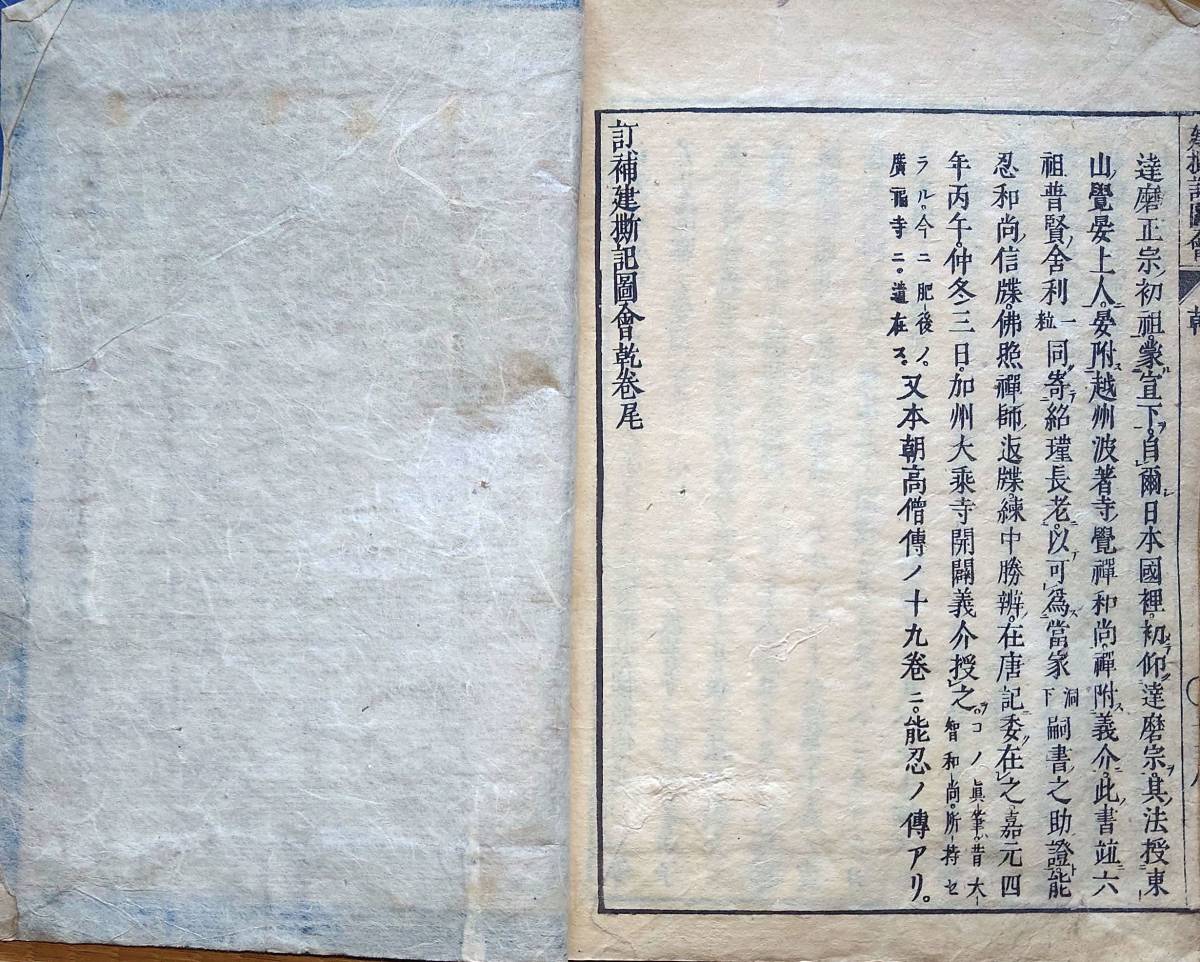 建撕記圖會 乾
達磨正宗初祖。蒙宣下。自爾日本國裡。初仰達磨宗。其法授東
山覺晏上人。晏附越州波著寺覺禪和尚。禪附義介。此書竝六
祖普賢舍利一粒同寄紹瑾長老。以可為當家洞下嗣書之助證。能
忍和尚信牒。佛照禪師返牒。練中勝辨。在唐記委在之。嘉元四
年丙午。仲冬三日。加州大乘寺開闢義介授之コノ眞筆昔大智和尚。所持セ
ラル。今ニ肥後ノ。廣福寺ニ。遺在ス。又本朝高僧傳ノ十九卷ニ。能忍ノ傳アリ。
訂補建撕記圖會乾卷尾